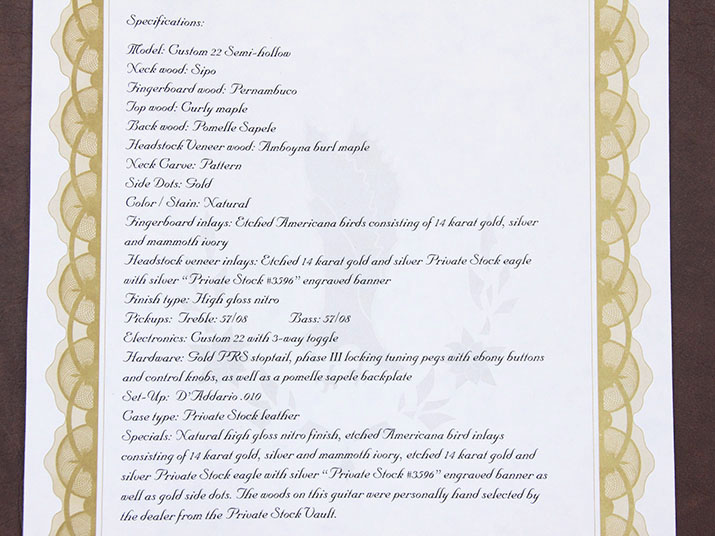 Specifications:
Model: Custom 22 Semi-hollow
Neck wood: Sipo
Fingerboard wood: Pernambuco
Top wood: Curly maple
Back wood: Pomelle Sapele
Headstock Veneer wood: Amboyna burl maple
Neck Carve: Pattern
Side Dots: Gold
Color / Stain: Natural
Fingerboard inlays: Etched Americana birds consisting of 14 karat gold, silver
and mammoth ivory
Headstock veneer inlays: Etched 14 karat gold and silver Private Stock eagle
with silver "Private Stock #3596" engraved banner
Finish type: High gloss nitro
Pickups: Treble: 57/08 Bass: 57/08
Electronics: Custom 22 with 3-way toggle
Hardware: Gold PRS stoptail, phase III locking tuning pegs with ebony buttons
and control knobs, as well as a pomelle sapele backplate
Set-Up: D'Addario .010
Case type: Private Stock leather
Specials: Natural high gloss nitro finish, etched Americana bird inlays
consisting of 14 karat gold, silver and mammoth ivory, etched 14 karat gold and
silver Private Stock eagle with silver "Private Stock #3596" engraved banner as
well as gold side dots. The woods on this guitar were personally hand selected by
the dealer from the Private Stock Vault.